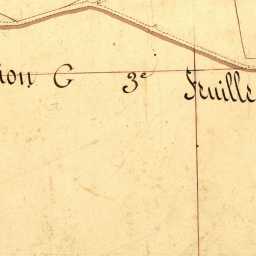 ion G 3e Feuille